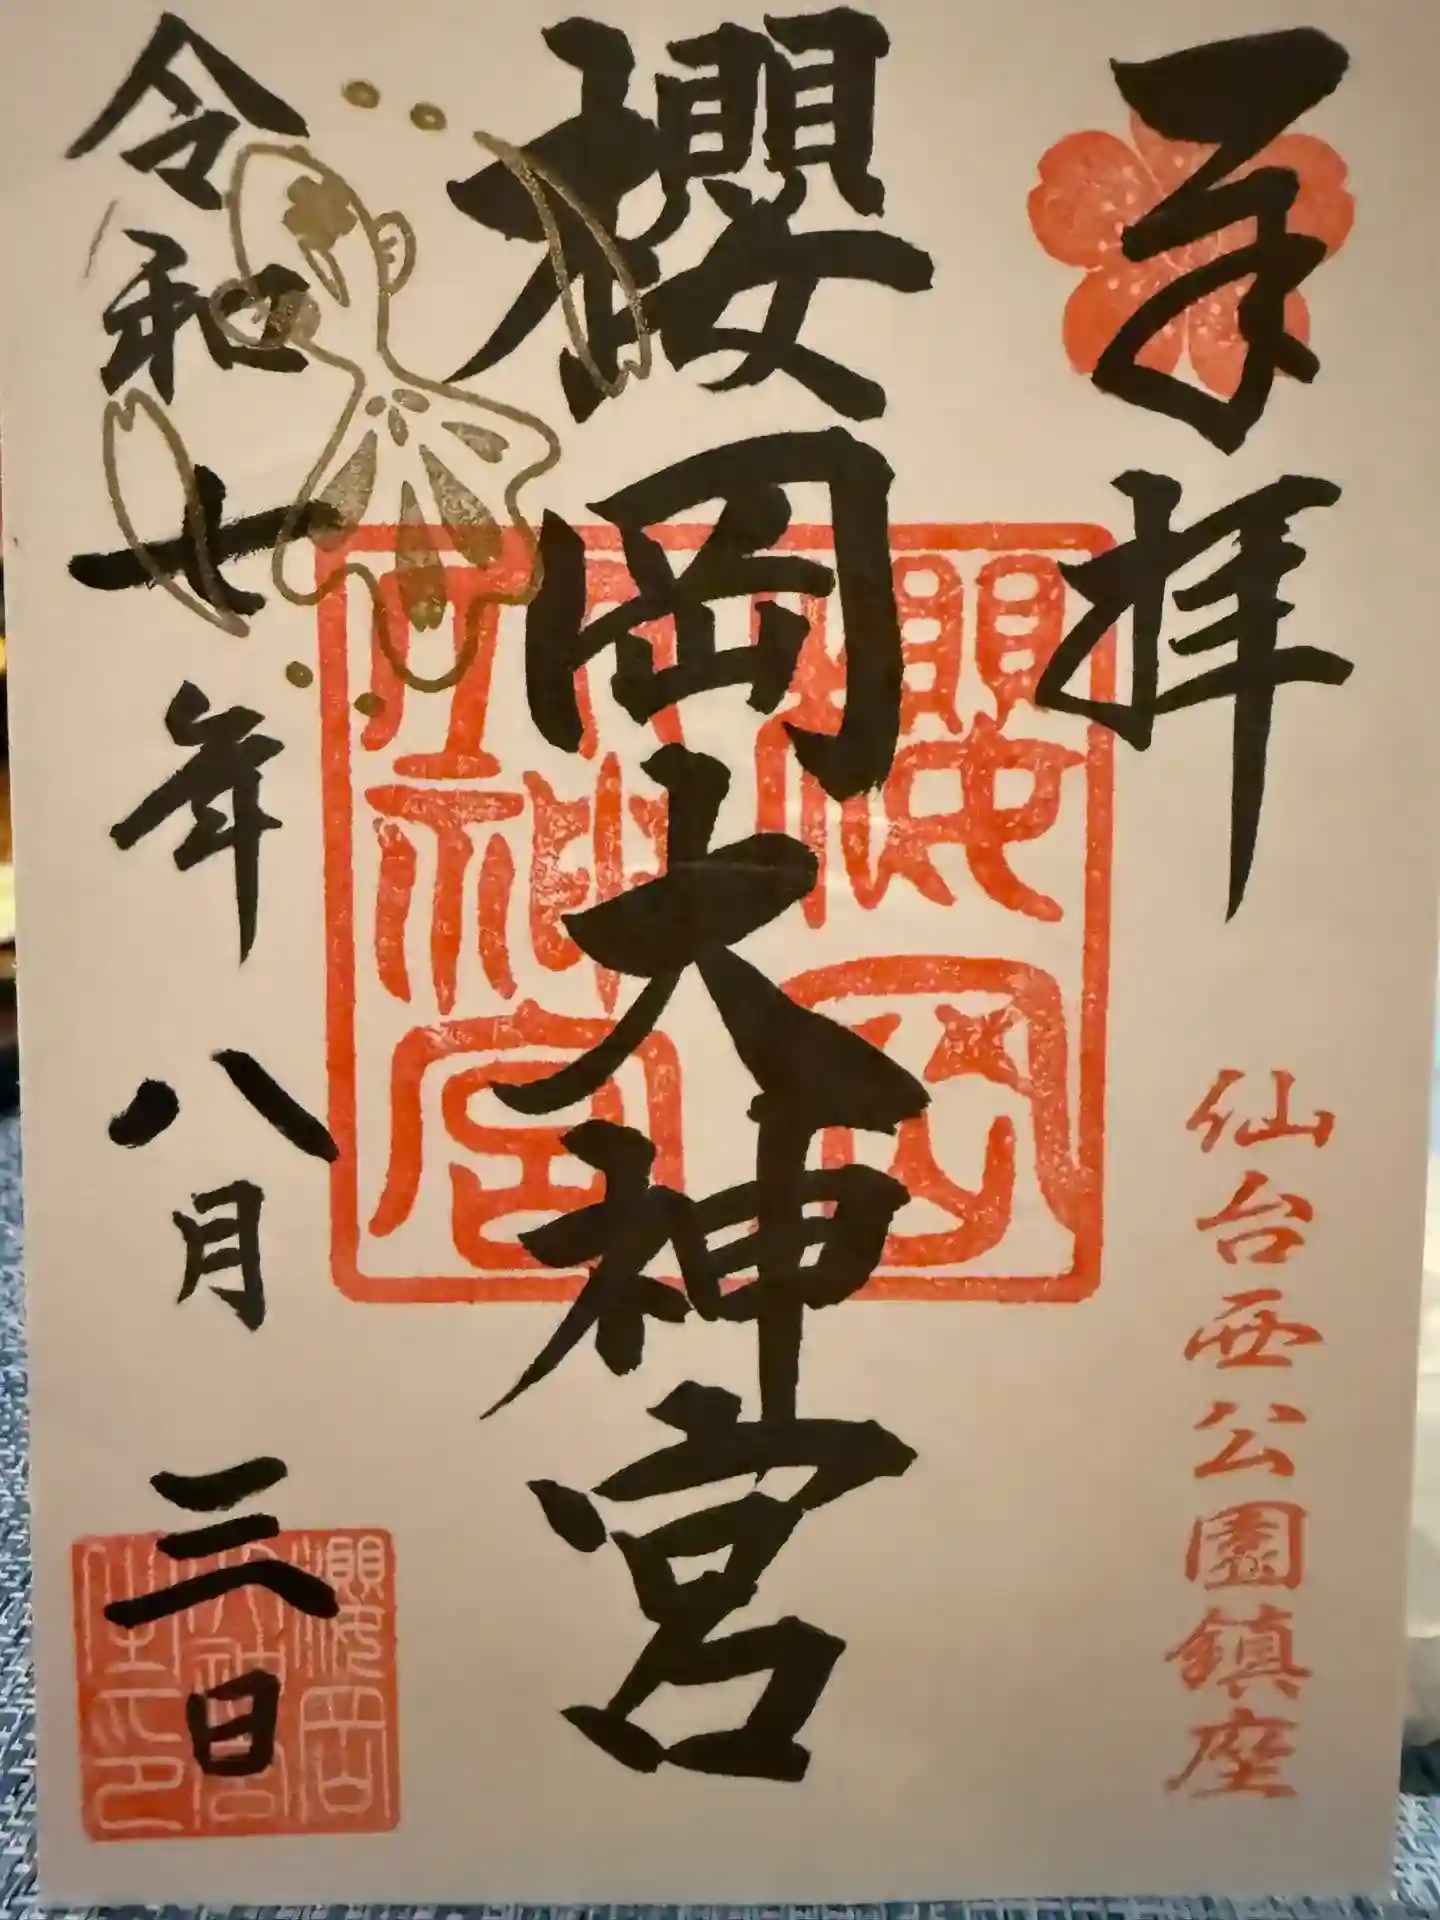 奉拝
仙台西公園鎮座
櫻岡大神宮
櫻岡
大神宮
令和七年八月三日
櫻岡
大神宮
之印